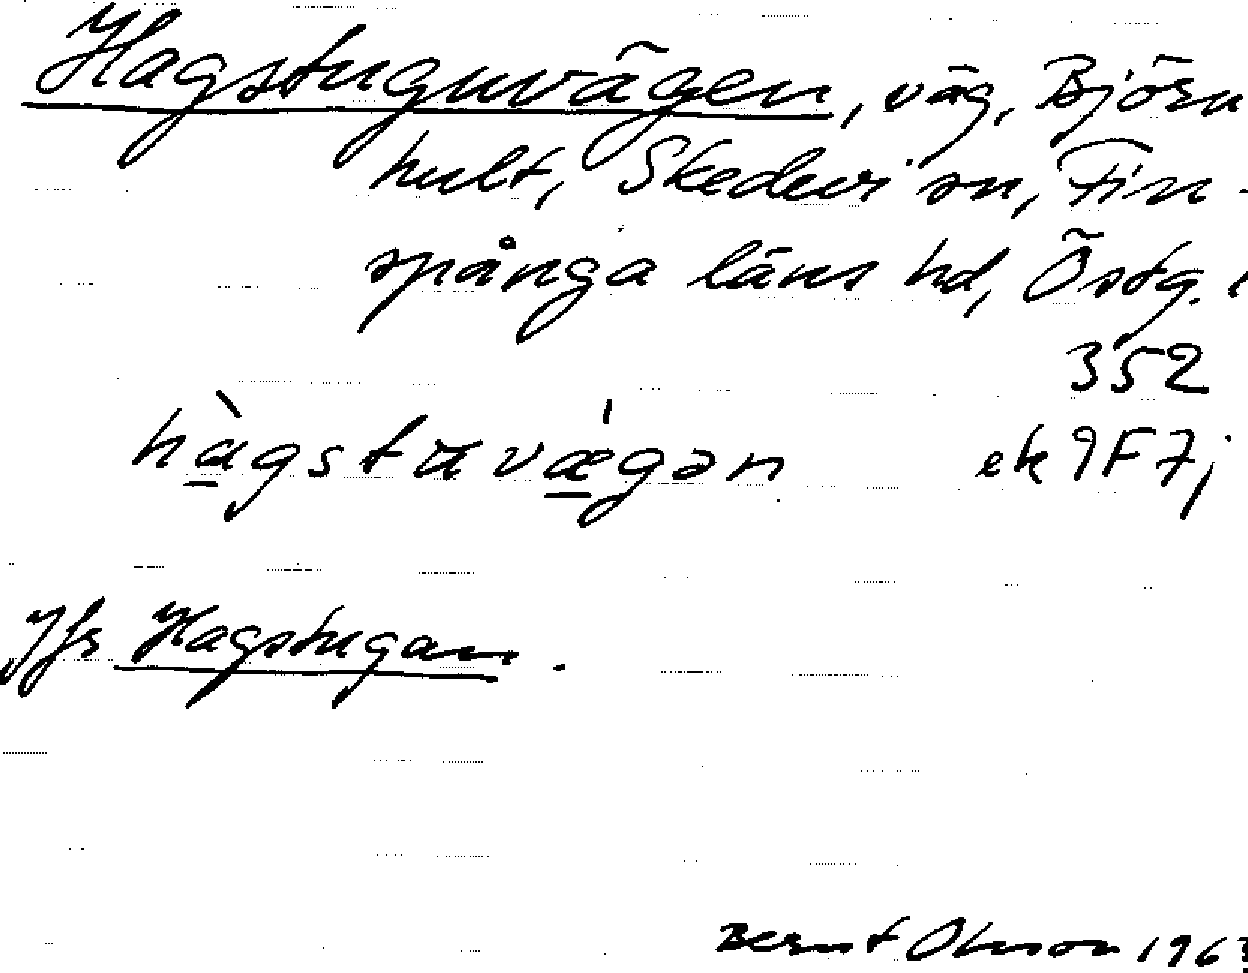 Hagstuguvägen, väg, Björn
hult, Skedevi sn, Fin-
spånga läns hd, Östg. l
352
hàgstuvǽgən ek 9F7j
Jfr Hagstugan.
Bernt Olsson 196